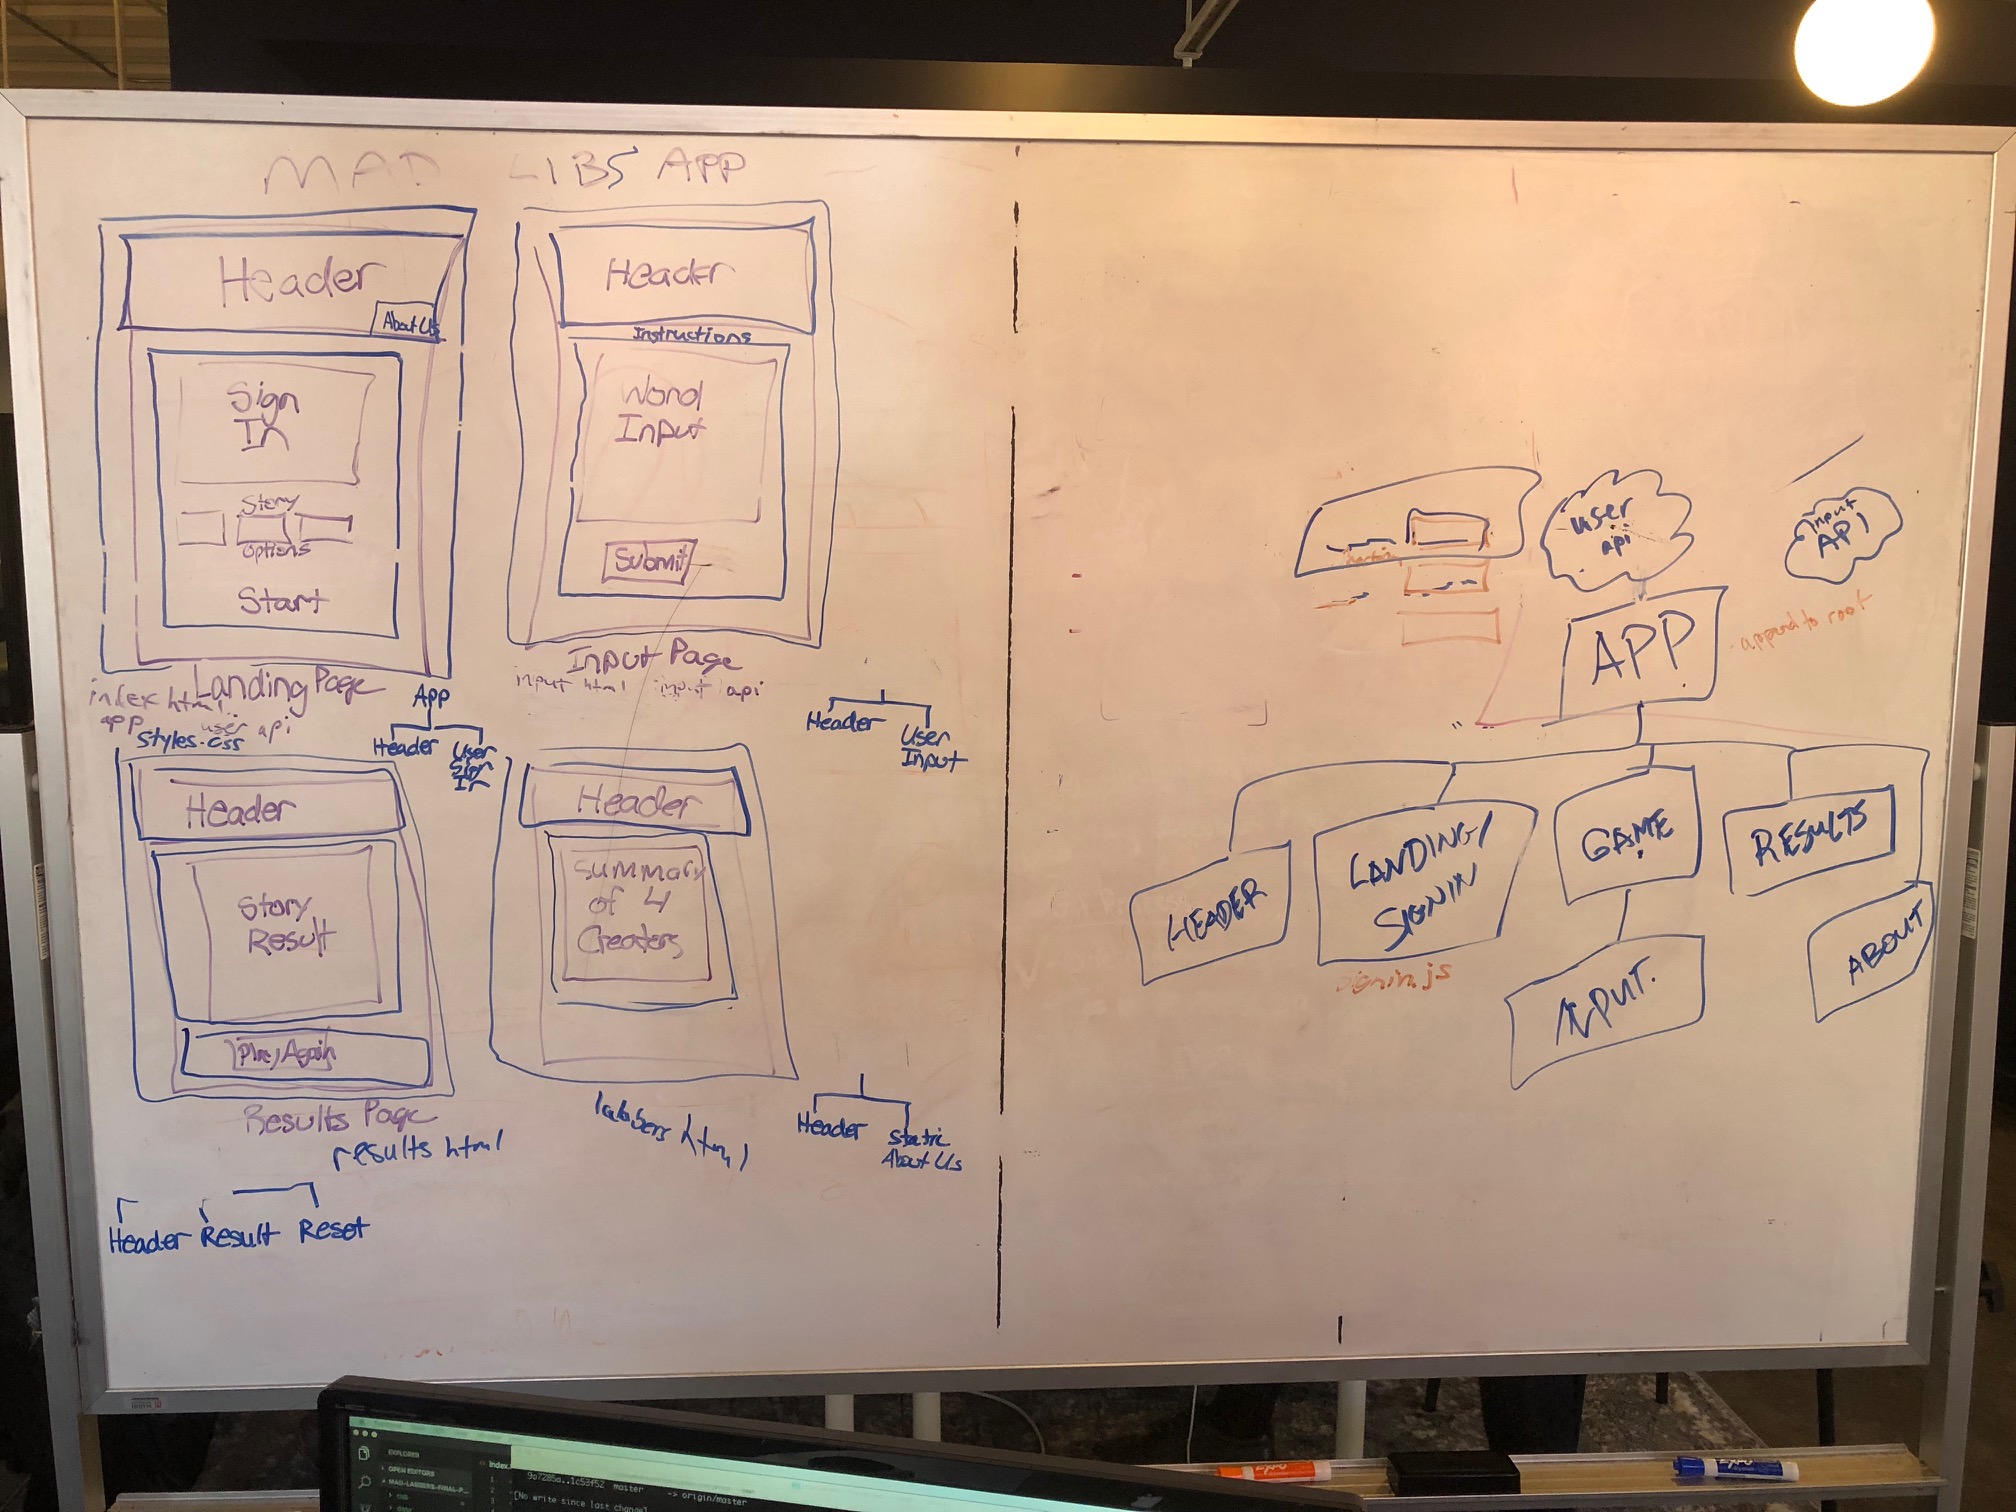 MAD LIBS APP
Header
About Us
Sign
In
Story
Options
Start
Landing Page
index html
app user api
styles.css
App
Header User
Sign
In
Header
Instructions
Word
Input
Submit
Input Page
input html input api
Header User
Input
Header
Story
Result
Play Again
Results Page
results html
Header Result Reset
Header
Summary
of 4
Creaters
labbers html
Header Static
About Us
user
api
input
API
APP
append to root
HEADER
LANDING/
SIGNIN
signin.js
GAME
INPUT.
RESULTS
ABOUT
EXPLORER
OPEN EDITORS
MAD-LABBERS-FINAL-P...
index.
1
2
3
4
9a7285a..1c53f52 master -> origin/master
[No write since last change]
EXPO
EXPO